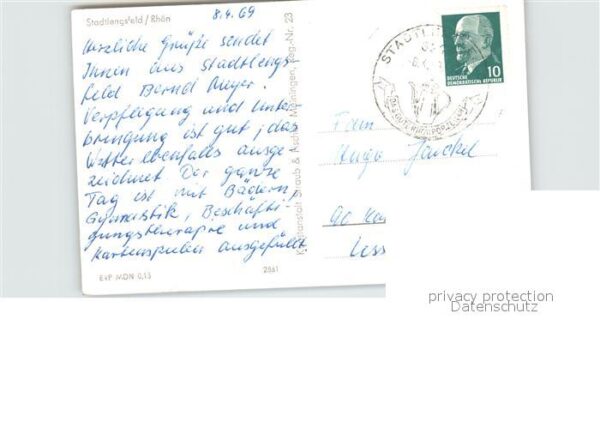 Stadtlengsfeld / Rhön
8.4.69
Herzliche Grüße sendet
Ihnen aus Stadtlengs
feld Bernd Meyer.
Verpflegung und Unter
bringung ist gut, das
Wetter ebenfalls ausge
zeichnet Der ganze
Tag ist mit Bädern,
Gymnastik, Beschäfti
gungstherapie und
Kartenspielen ausgefüllt
EVP MDN 0,15
2561
Kunstanstalt Straub & Meiningen, Reg.-Nr. 23
STADTL
10
DEUTSCHE
DEMOKRATISCHE REPUBLIK
Frau
Hugo
90
privacy protection
Datenschutz